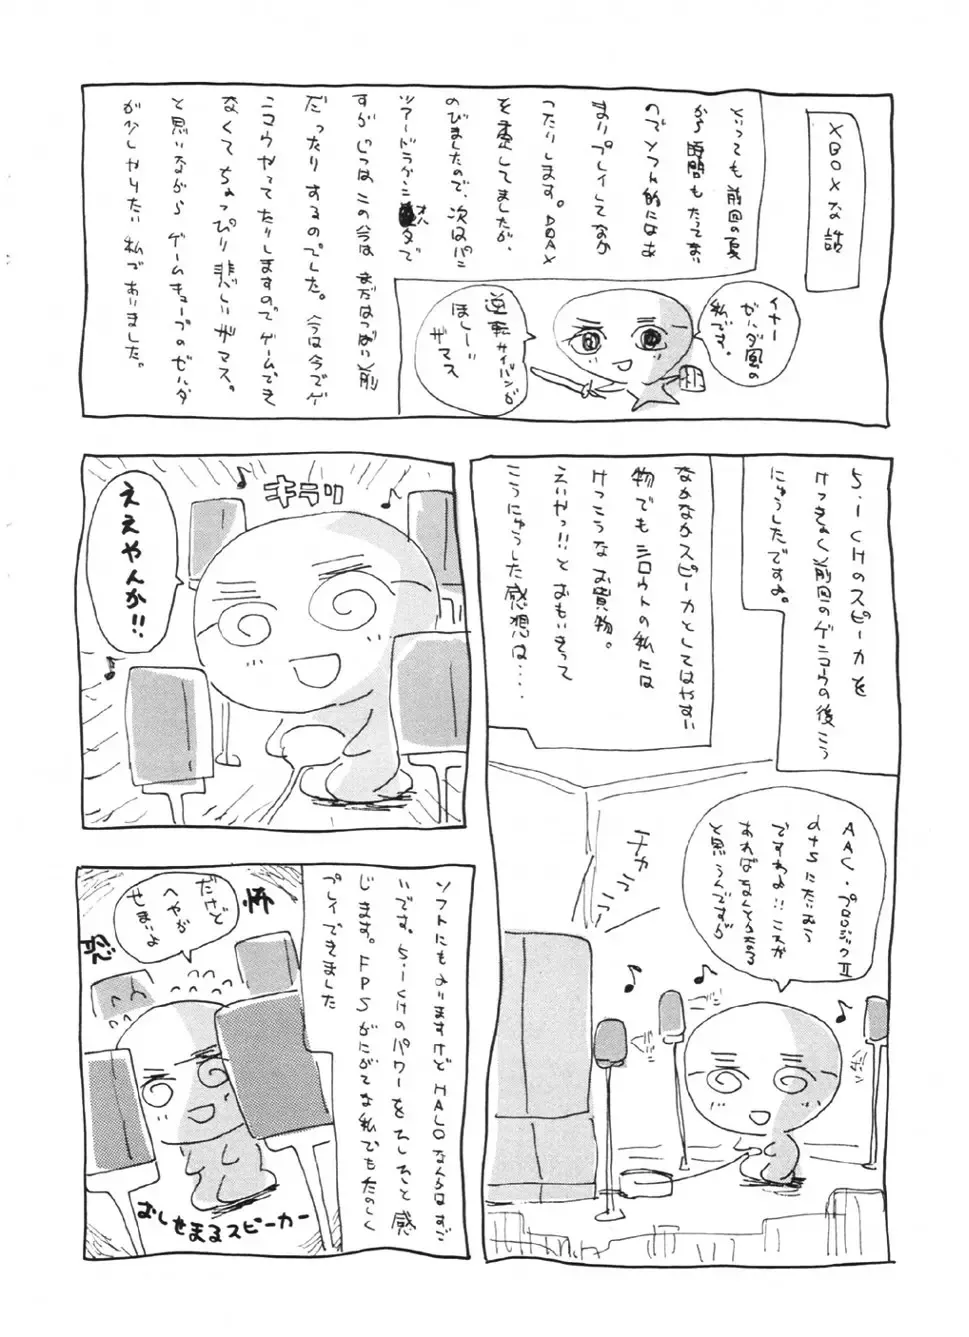 XBOXな話
といっても前回の夏
から時間もたってない
のでソフト的にはあ
まりプレイしてなか
ったりします。DOAX
を楽ししてましたが、
のびましたので、次はパン
ツァードラグーンオルタで
すが じつはこの今は まだはつばい前
だったりするのでした。今は今でゲ
ニコウやってたりしますのでゲームでき
なくてちょっぴり悲しいザマス。
と思いながら ゲームキューブのゼルダ
が少しやりたい私でありました。
イナー
ゼルダ風の
私です。
逆転サイバンが
ほしーい
ザマス
5.1CHのスピーカを
けっきょく前回のゲニコウの後こう
にゅうしたですよ。
なかなかスピーカとしてはやすい
物でも シロウトの私には
けっこうな お買物。
えいやっ!!と おもいきって
こうにゅうした感想は‥‥
AAC・プロロジックⅡ
ですわよ!!これが
あればなんとかなる
と思うんですが
チカチカッ
♪
♪
♪
キラリ
♪
♪
♪
ええやんか!!
ソフトにもよりますけど HALOなんかはすご
いです。5.1CHのパワーをひしひしと感
じます。FPSがにがてな私でもたのしく
プレイできました
だけど
へやが
せまいよ
おしせまるスピーカー